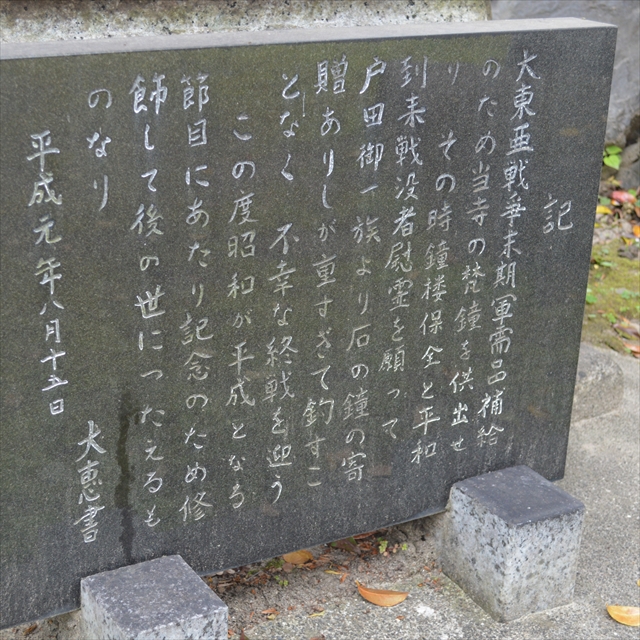 記
大東亜戦争末期軍需品補給
のため当寺の梵鐘を供出せ
り その時鐘楼保全と平和
到来戦没者慰霊を願って
戸田御一族より石の鐘の寄
贈ありしが重すぎて釣すこ
となく 不幸な終戦を迎う
この度昭和が平成となる
節目にあたり記念のため修
飾して後の世につたえるも
のなり
平成元年八月十五日
大恵書